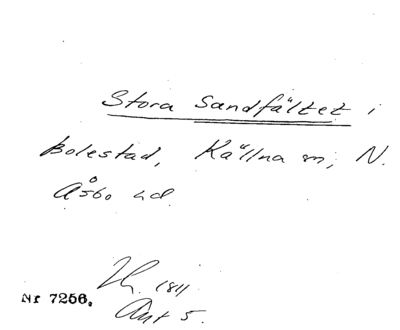 Stora Sandfältet i
Bolestad, Källna sn, N.
Åsbo hd.
1811
Akt 5.
Nr 7256.